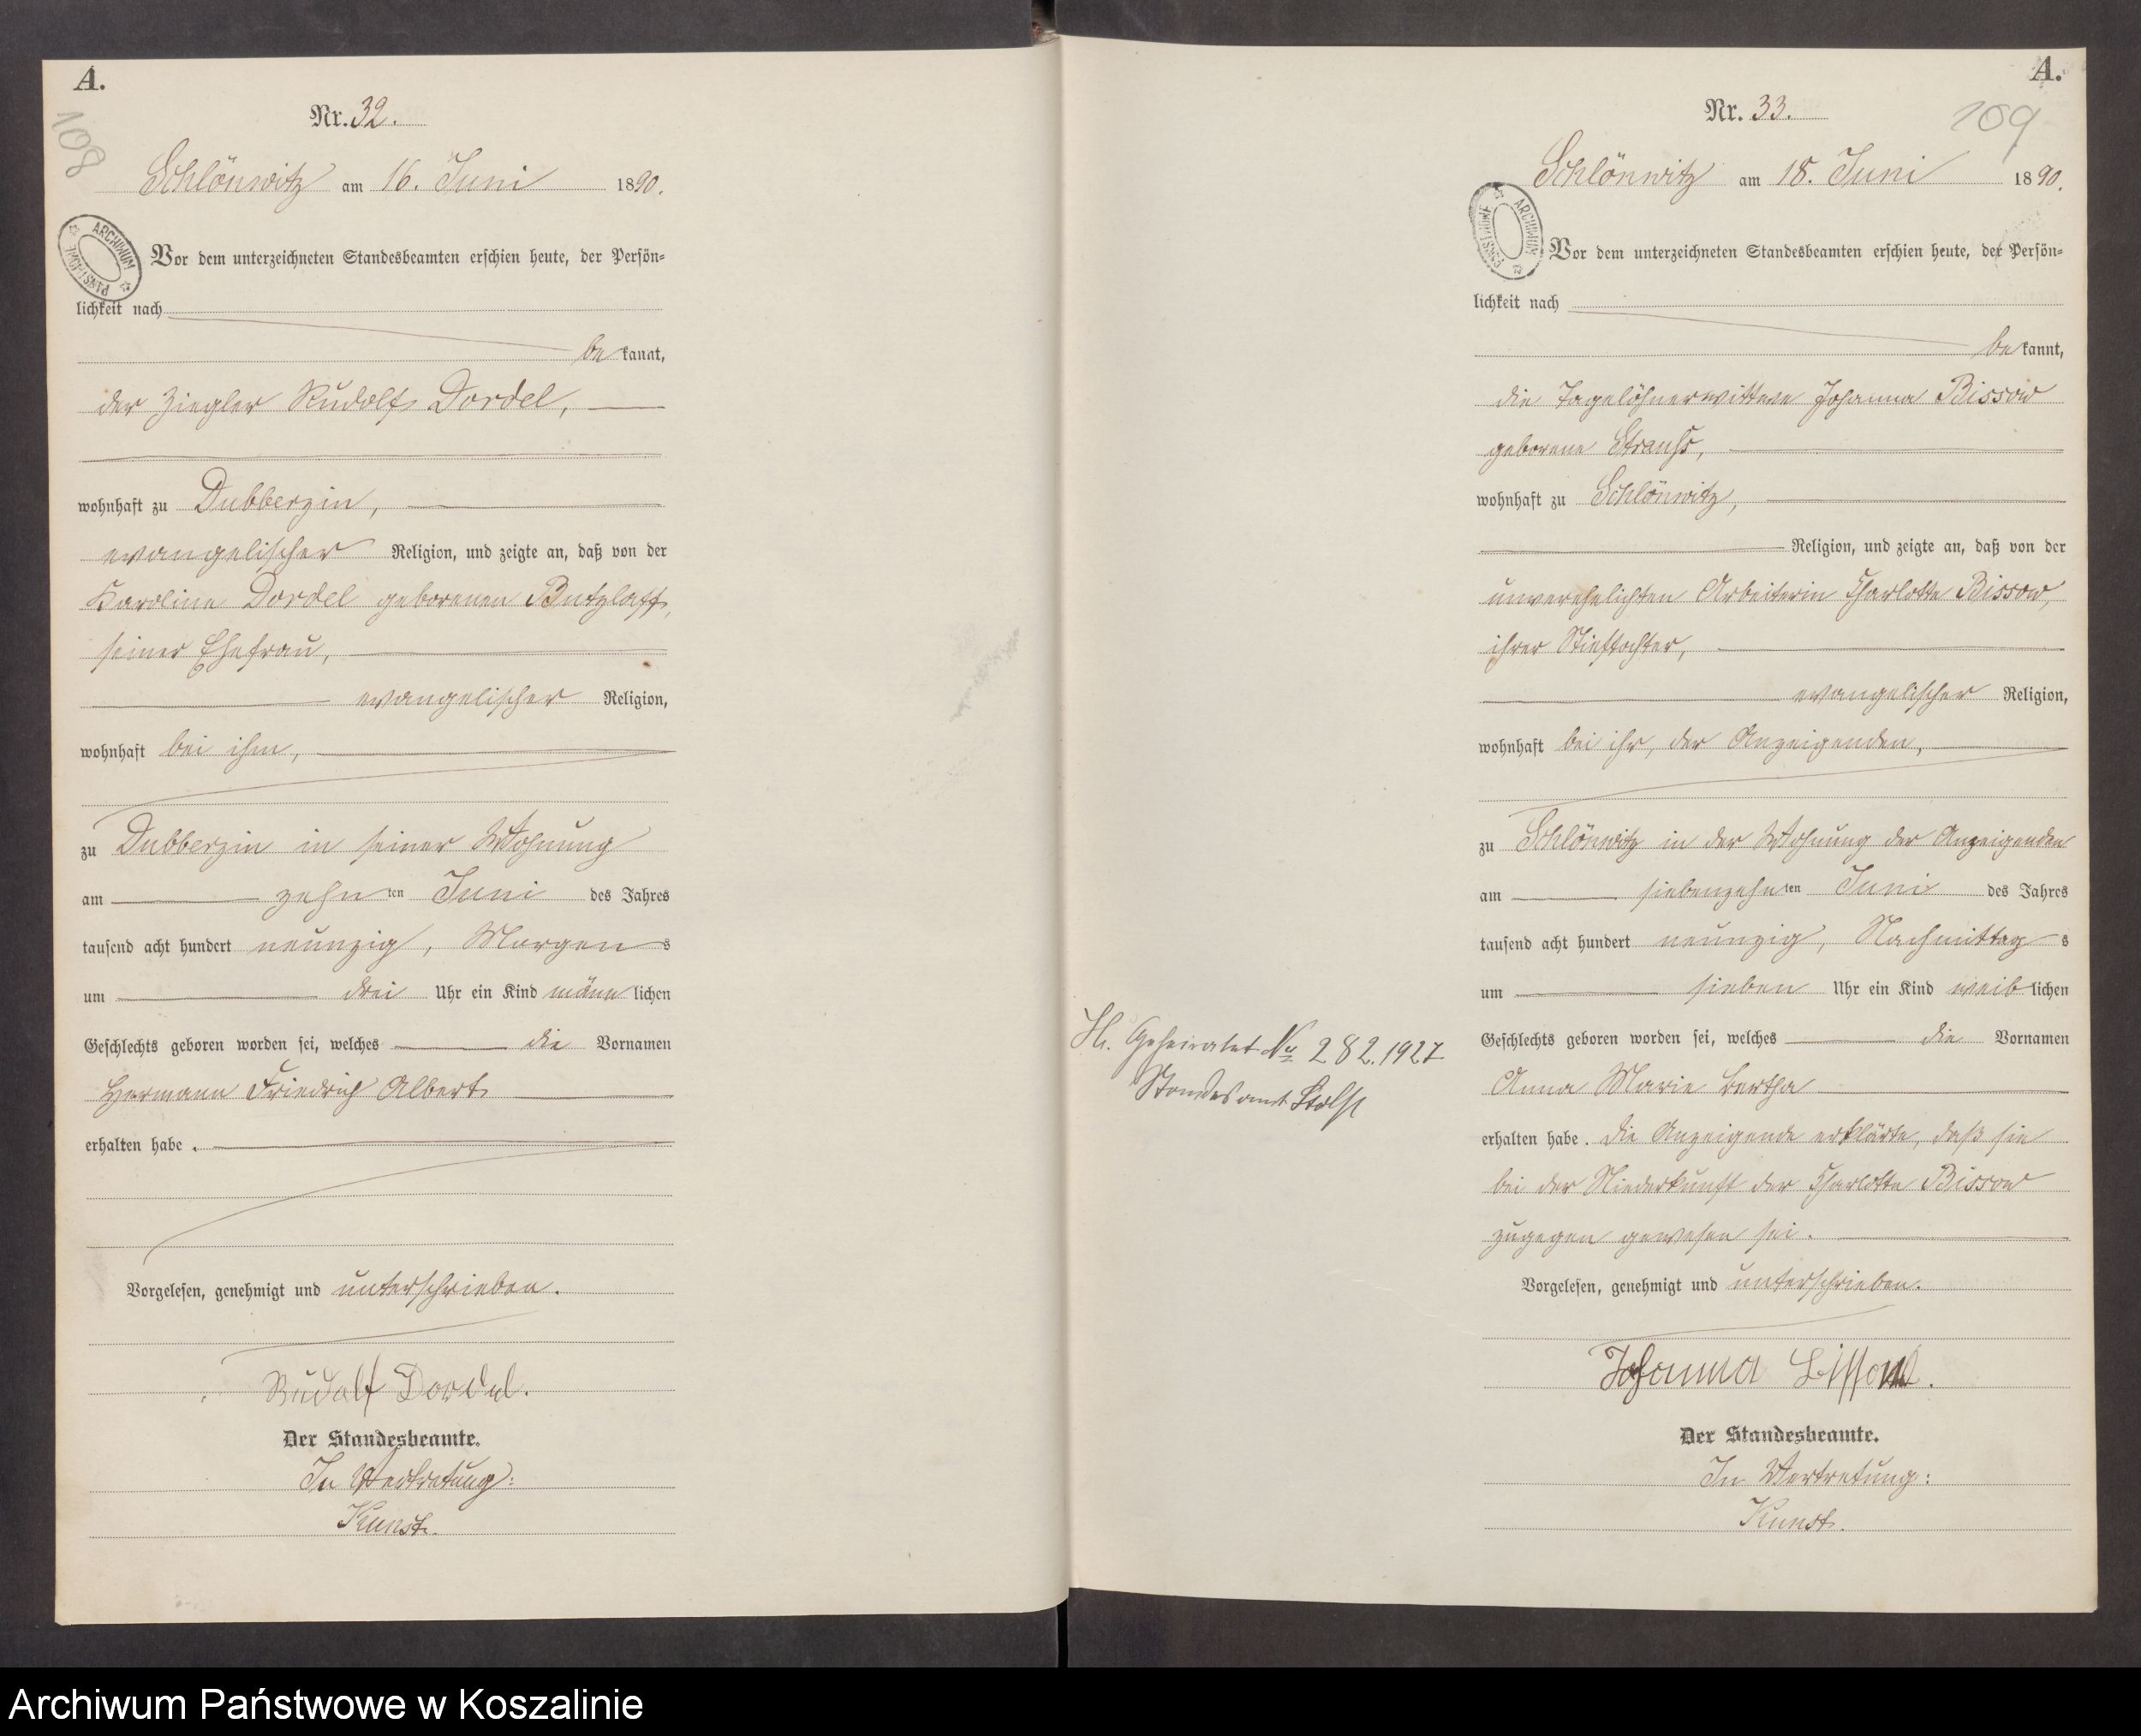 A.
108
Nr. 32.
Schlönwitz am 16. Juni 1890.
ARCHIWUM PAŃSTWOWE
Vor dem unterzeichneten Standesbeamten erschien heute, der Persön=
lichkeit nach
be kannt,
der Ziegler Rudolf Dordel,
wohnhaft zu Dubberzin,
evangelischer Religion, und zeigte an, daß von der
Karoline Dordel geborenen Butzlaff,
seiner Ehefrau,
evangelischer Religion,
wohnhaft bei ihm,
zu Dubberzin in seiner Wohnung
am zehn ten Juni des Jahres
tausend acht hundert neunzig, Morgen s
um drei Uhr ein Kind männ lichen
Geschlechts geboren worden sei, welches die Vornamen
Hermann Friedrich Albert
erhalten habe.
Vorgelesen, genehmigt und unterschrieben.
Rudolf Dordel.
Der Standesbeamte.
In Vertretung:
Kunst.
A.
109
Nr. 33.
Schlönwitz am 18. Juni 1890.
ARCHIWUM PAŃSTWOWE
Vor dem unterzeichneten Standesbeamten erschien heute, der Persön=
lichkeit nach
be kannt,
die Tagelöhnerwittwe Johanna Bissow
geborene Strauß,
wohnhaft zu Schlönwitz,
Religion, und zeigte an, daß von der
unverehelichten Arbeiterin Charlotte Bissow,
ihrer Stieftochter,
evangelischer Religion,
wohnhaft bei ihr, der Anzeigenden,
zu Schlönwitz in der Wohnung der Anzeigenden
am siebenzehn ten Juni des Jahres
tausend acht hundert neunzig, Nachmittag s
um sieben Uhr ein Kind weib lichen
Geschlechts geboren worden sei, welches die Vornamen
Anna Marie Bertha
erhalten habe. Die Anzeigende erklärte, daß sie
bei der Niederkunft der Charlotte Bissow
zugegen gewesen sei.
Vorgelesen, genehmigt und unterschrieben.
Johanna Bissow.
Der Standesbeamte.
In Vertretung:
Kunst.
Geheiratet No 282.1927
Standesamt Stolp
Archiwum Państwowe w Koszalinie